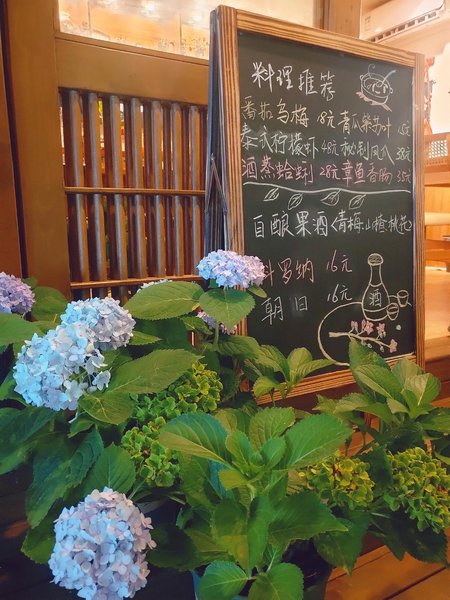 料理推荐
番茄乌梅 18元 青瓜紫苏叶
泰式柠檬虾 48元 38元
酒蒸蛤蜊 28元 章鱼香肠 35元
自酿果酒<青梅.山楂.桃花>
科罗纳 16元
朝日 16元
酒